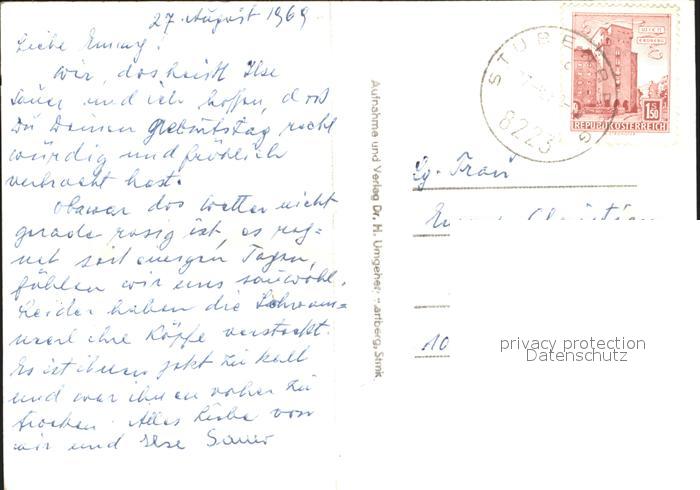 27. August 1969
Liebe Emmy!
Wir, das heißt Ilse
Sauer und ich hoffen, daß
Du Deinen Geburtstag recht
würdig und fröhlich
verbracht hast.
Obzwar das Wetter nicht
gerade rosig ist, es reg-
net seit einigen Tagen,
fühlen wir uns sauwohl.
Leider haben die Schwam-
merl ihre Köpfe versteckt.
Es ist ihnen jetzt zu kalt
und war ihnen vorher zu
trocken. Alles Liebe von
mir und Ilse Sauer
Aufnahme und Verlag Dr. H. Umgeher, Hartberg, Stmk.
STUBENBERG
8223
WIEN
ERDBERG
1.50
REPUBLIK ÖSTERREICH
Frau
Christian
10
privacy protection
Datenschutz